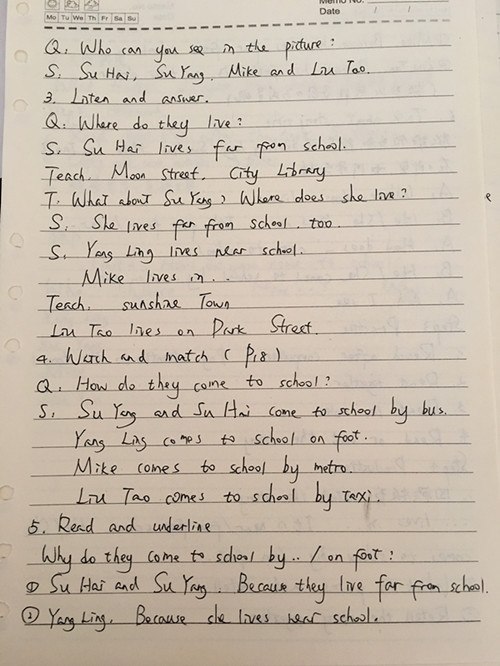 Memo No.
Mo Tu We Th Fr Sa Su
Date / /
Q: Who can you see in the picture?
S: Su Hai, Su Yang, Mike and Liu Tao.
3. Listen and answer.
Q: Where do they live?
S: Su Hai lives far from school.
Teach: Moon Street, City Library
T: What about Su Yang? Where does she live?
S: She lives far from school, too.
S: Yang Ling lives near school.
Mike lives in ..
Teach: sunshine Town
Liu Tao lives on Park Street.
4. Watch and match (P18)
Q: How do they come to school?
S: Su Yang and Su Hai come to school by bus.
Yang Ling comes to school on foot.
Mike comes to school by metro.
Liu Tao comes to school by taxi.
5. Read and underline
Why do they come to school by .. / on foot?
① Su Hai and Su Yang. Because they live far from school.
② Yang Ling. Because she lives near school.